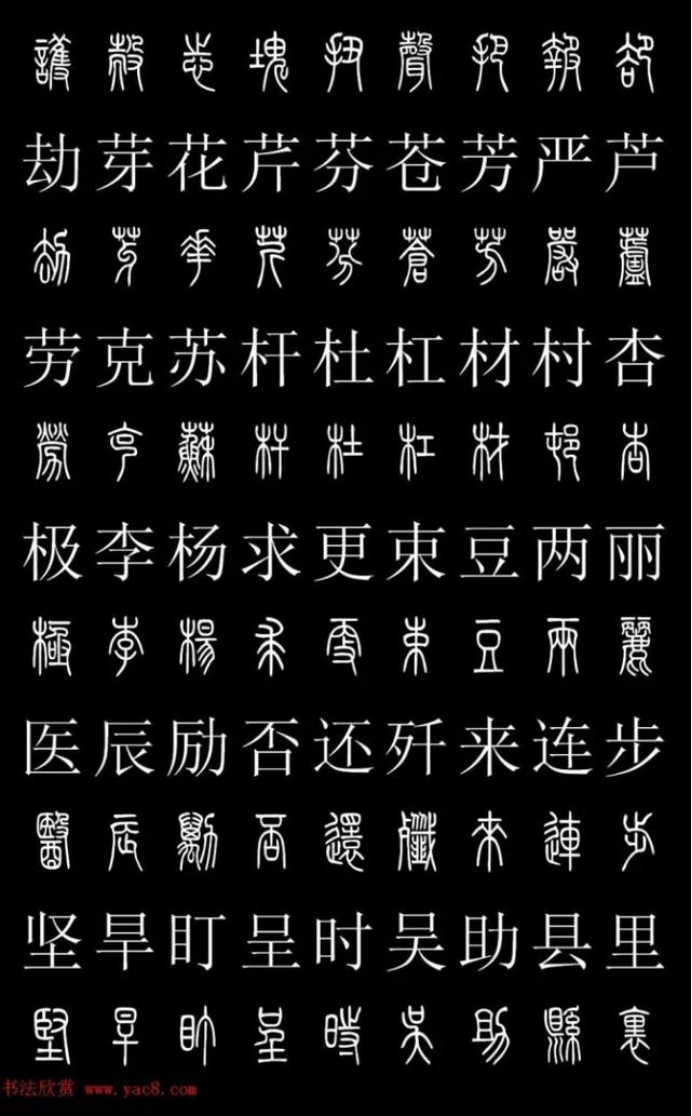 護殻志塊扭聲把報卻
劫芽花芹芬苍芳严芦
劫芽華芹芬蒼芳嚴蘆
劳克苏杆杜杠材村杏
勞克蘇杆杜杠材邨杏
极李杨求更束豆两丽
極李楊求更束豆兩麗
医辰励否还歼来连步
醫辰勵否還殲來連步
坚旱盯呈时吴助县里
堅旱盯呈時吳助縣裏
书法欣赏 www.yac8.com